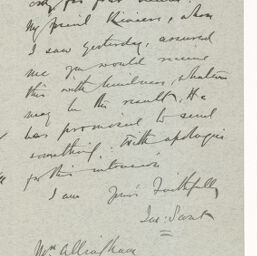 only for your
My friend Riviere, whom
I saw yesterday, assured
me you would receive
this with kindness, whatever
may be the result. He
has promised to send
something. With apologies
for this intrusion
I am Yours Faithfully
Jas: Sant
Wm. Allingham